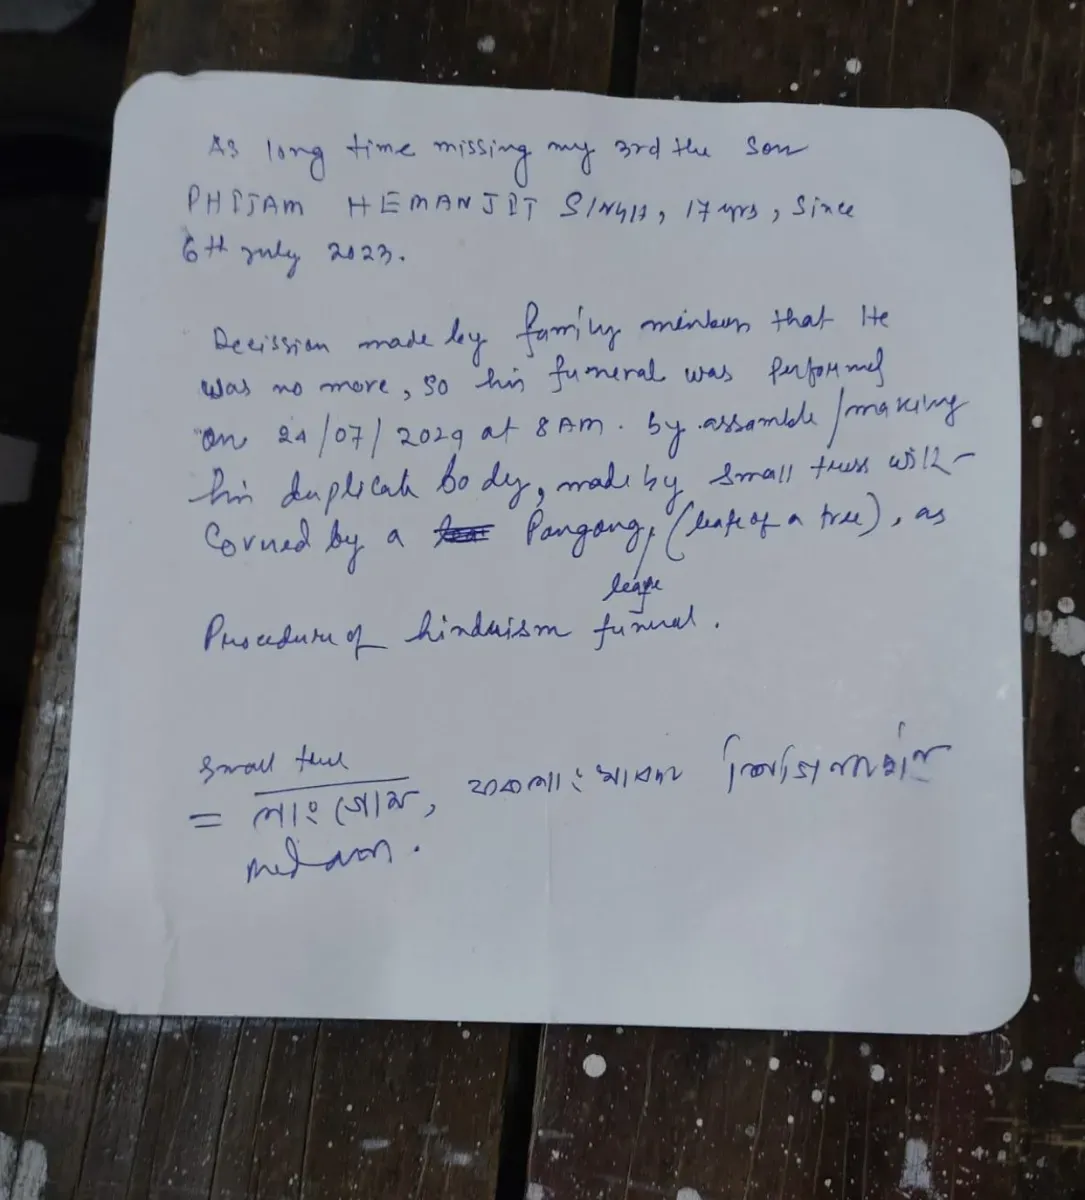 As long time missing my 3rd the son
PHIJAM HEMANJIT SINGH, 17 yrs, Since
6th July 2023.
Decission made by family members that He
was no more, so his funeral was Performed
on 24/07/2024 at 8 AM. by assamble/making
his duplicate body, made by small trees with
Coverd by a Pangong, (leafe of a tree), as
leafe
Procedure of hinduism funeral.
Small tree
= লাংগোম,